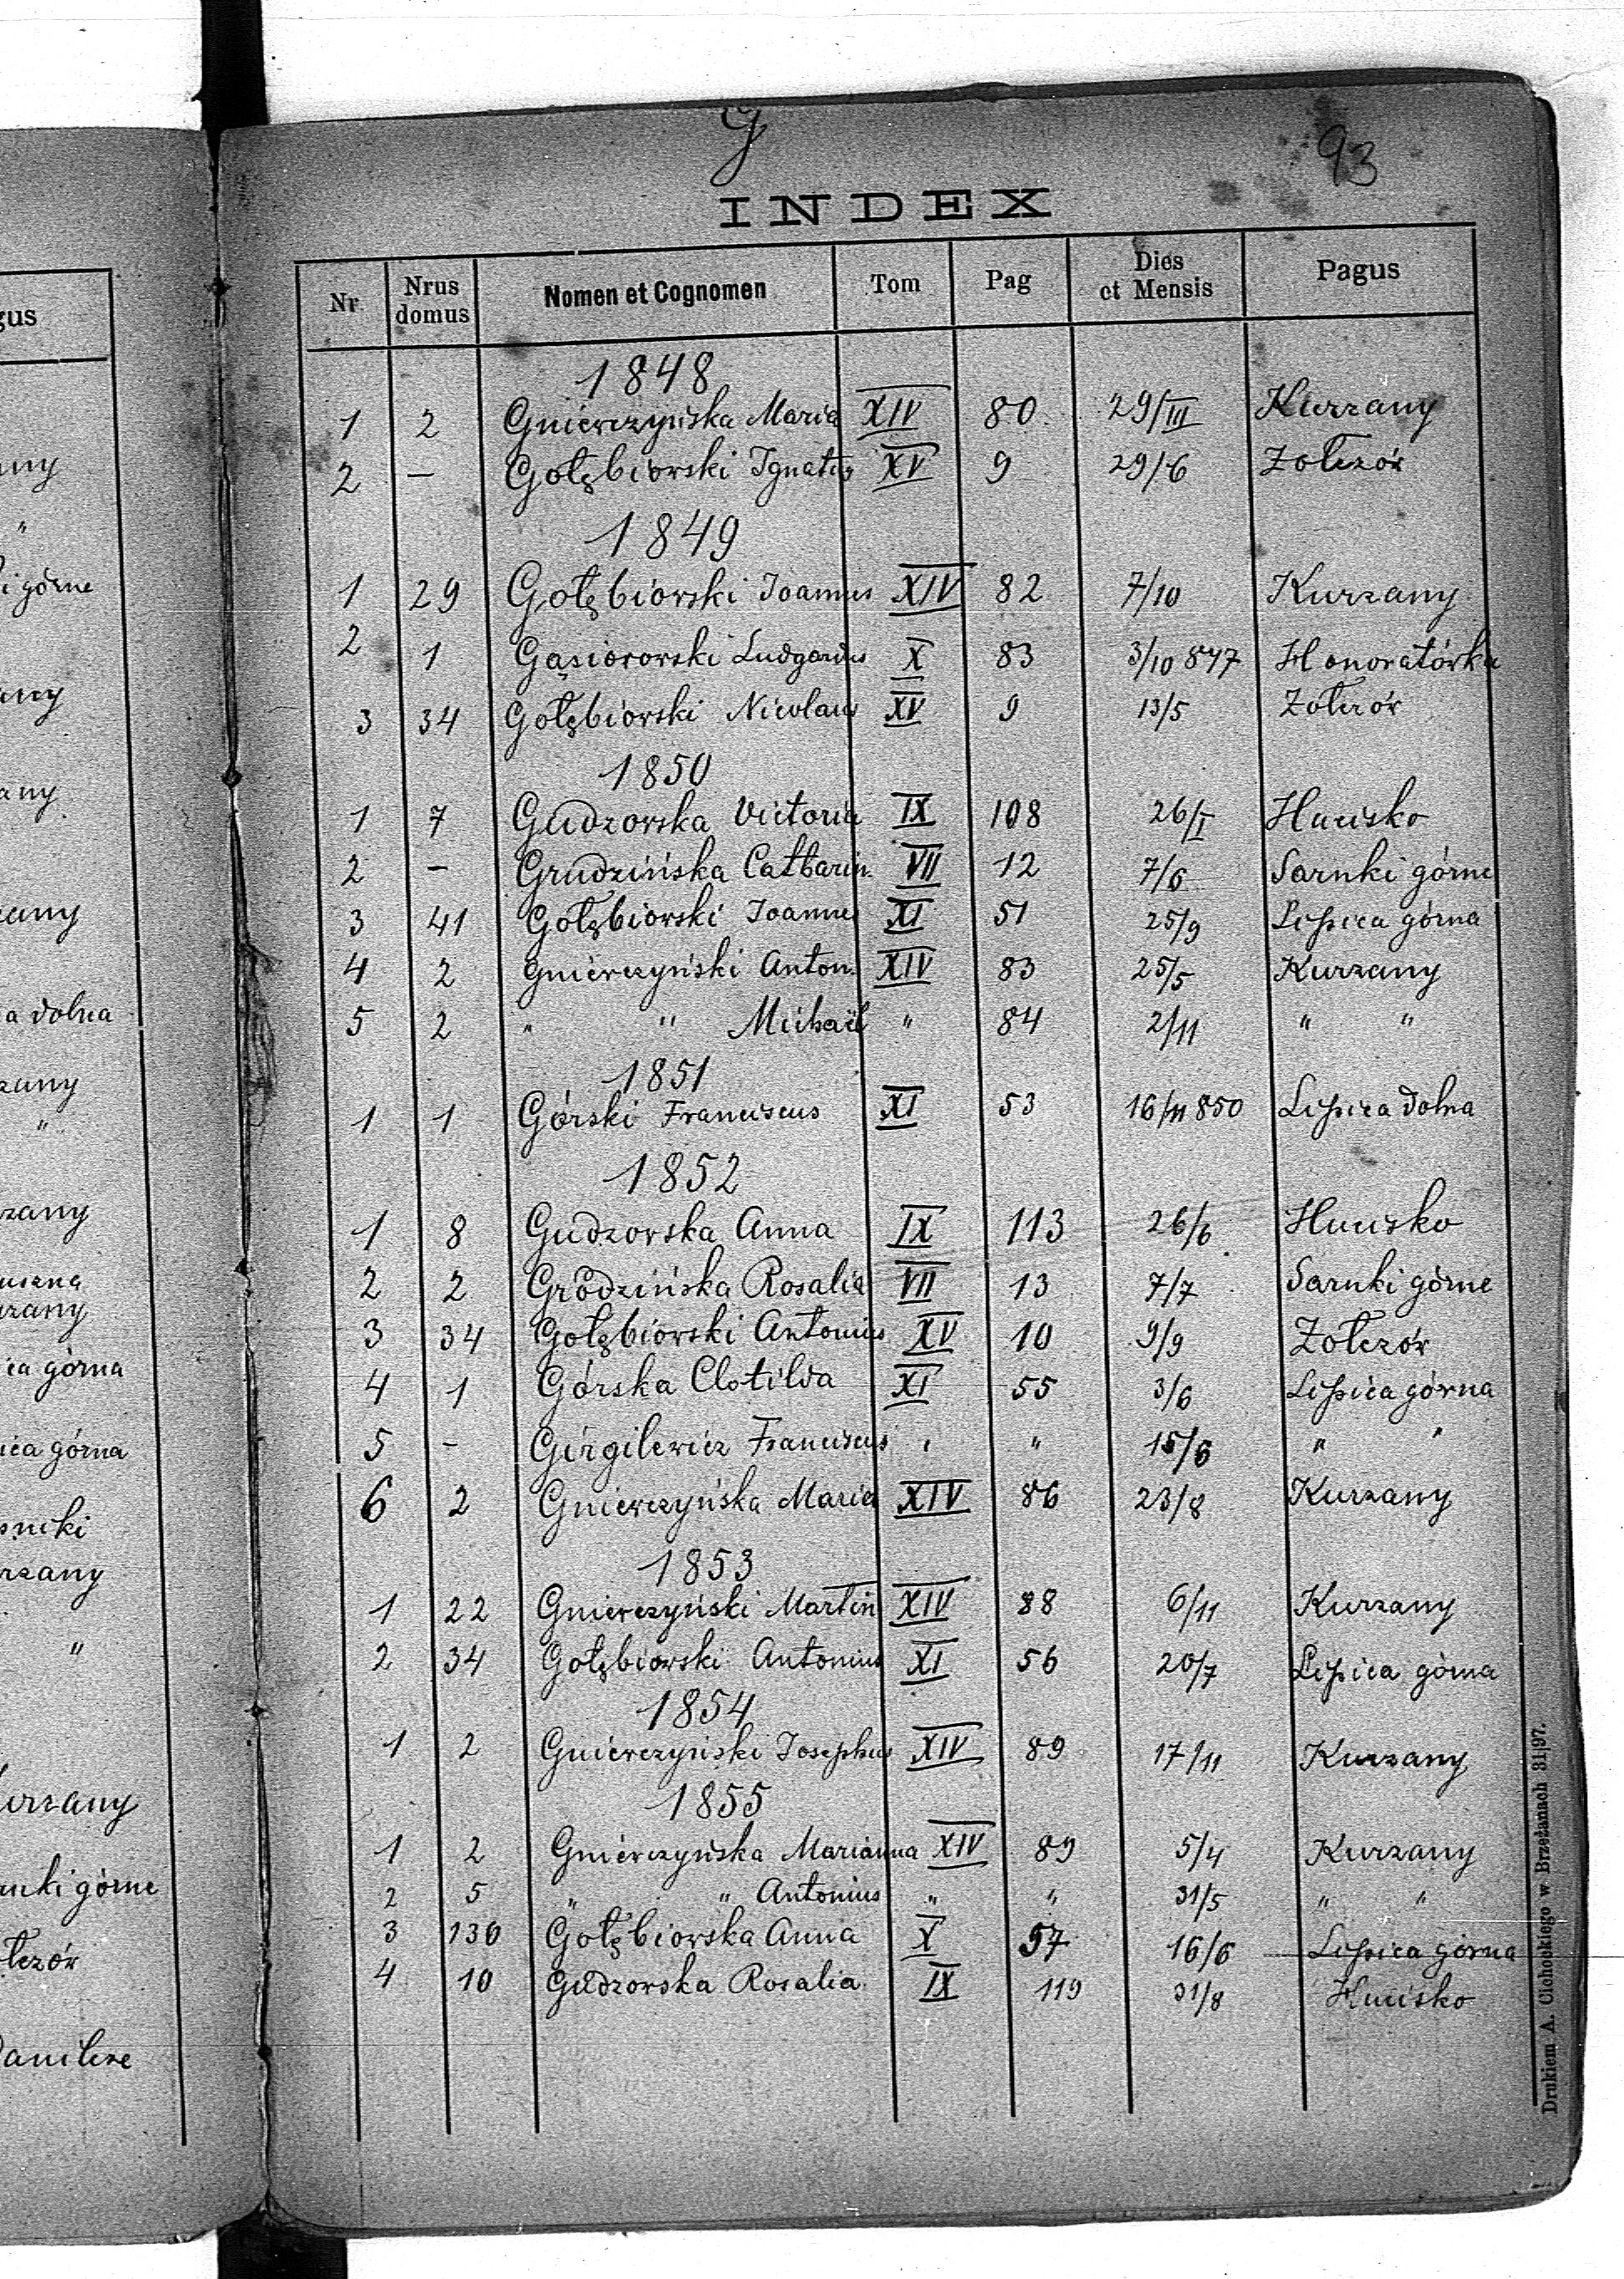 gus
any
"
i górne
any
any
zany
a dolna
zany
"
zany
uszna
rzany
ica górna
ica górna
rzany
"
urzany
nki górne
łczów
G
93
INDEX
Nr Nrus domus Nomen et Cognomen Tom Pag Dies et Mensis Pagus
1848
1 2 Gniewczyńska Maria XIV 80 29/III Kurzany
2 — Gołębiowski Ignatius XV 9 29/6 Żołczów
1849
1 29 Gołębiowski Joannes XIV 82 7/10 Kurzany
2 1 Gąsiorowski Ludgardus X 83 3/10 847 Honoratówka
3 34 Gołębiowski Nicolaus XV 9 13/5 Żołczów
1850
1 7 Gudzowska Victoria IX 108 26/I Hucisko
2 — Grudzińska Catharin. VII 12 7/6 Sarnki górne
3 41 Gołębiowski Joannes XI 51 25/9 Lipica górna
4 2 Gniewczyński Anton. XIV 83 25/5 Kurzany
5 2 " " Michaël " 84 2/11 " "
1851
1 1 Górski Franciscus XI 53 16/11 850 Lipica dolna
1852
1 8 Gudzowska Anna IX 113 26/6 Hucisko
2 2 Gródzińska Rosalia VII 13 7/7 Sarnki górne
3 34 Gołębiowski Antonius XV 10 9/9 Żołczów
4 1 Górska Clotilda XI 55 3/6 Lipica górna
5 - Girgilewicz Franciscus " " 15/6 " "
6 2 Gniewczyńska Maria XIV 86 23/8 Kurzany
1853
1 22 Gniewczyński Martin XIV 88 6/11 Kurzany
2 34 Gołębiowski Antonius XI 56 20/7 Lipica górna
1854
1 2 Gniewczyński Josephus XIV 89 17/11 Kurzany
1855
1 2 Gniewczyńska Marianna XIV 89 5/4 Kurzany
2 5 " " Antonius " " 31/5 " "
3 130 Gołębiowska Anna X 97 16/6 Lipica górna
4 10 Gudzowska Rosalia IX 119 31/8 Hucisko
Drukiem A. Cichockiego w Brzeżanach 31|97.